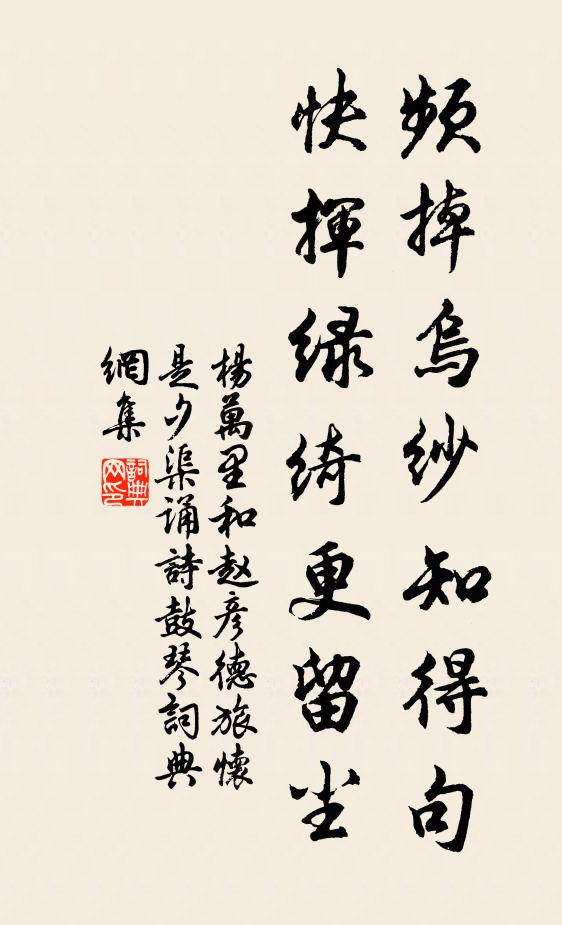 頻掉烏紗知得句
快揮緑綺更留坐
楊萬里和赵彦德旅懷
是夕渠誦詩鼓琴詞典
網集
詞典
网印